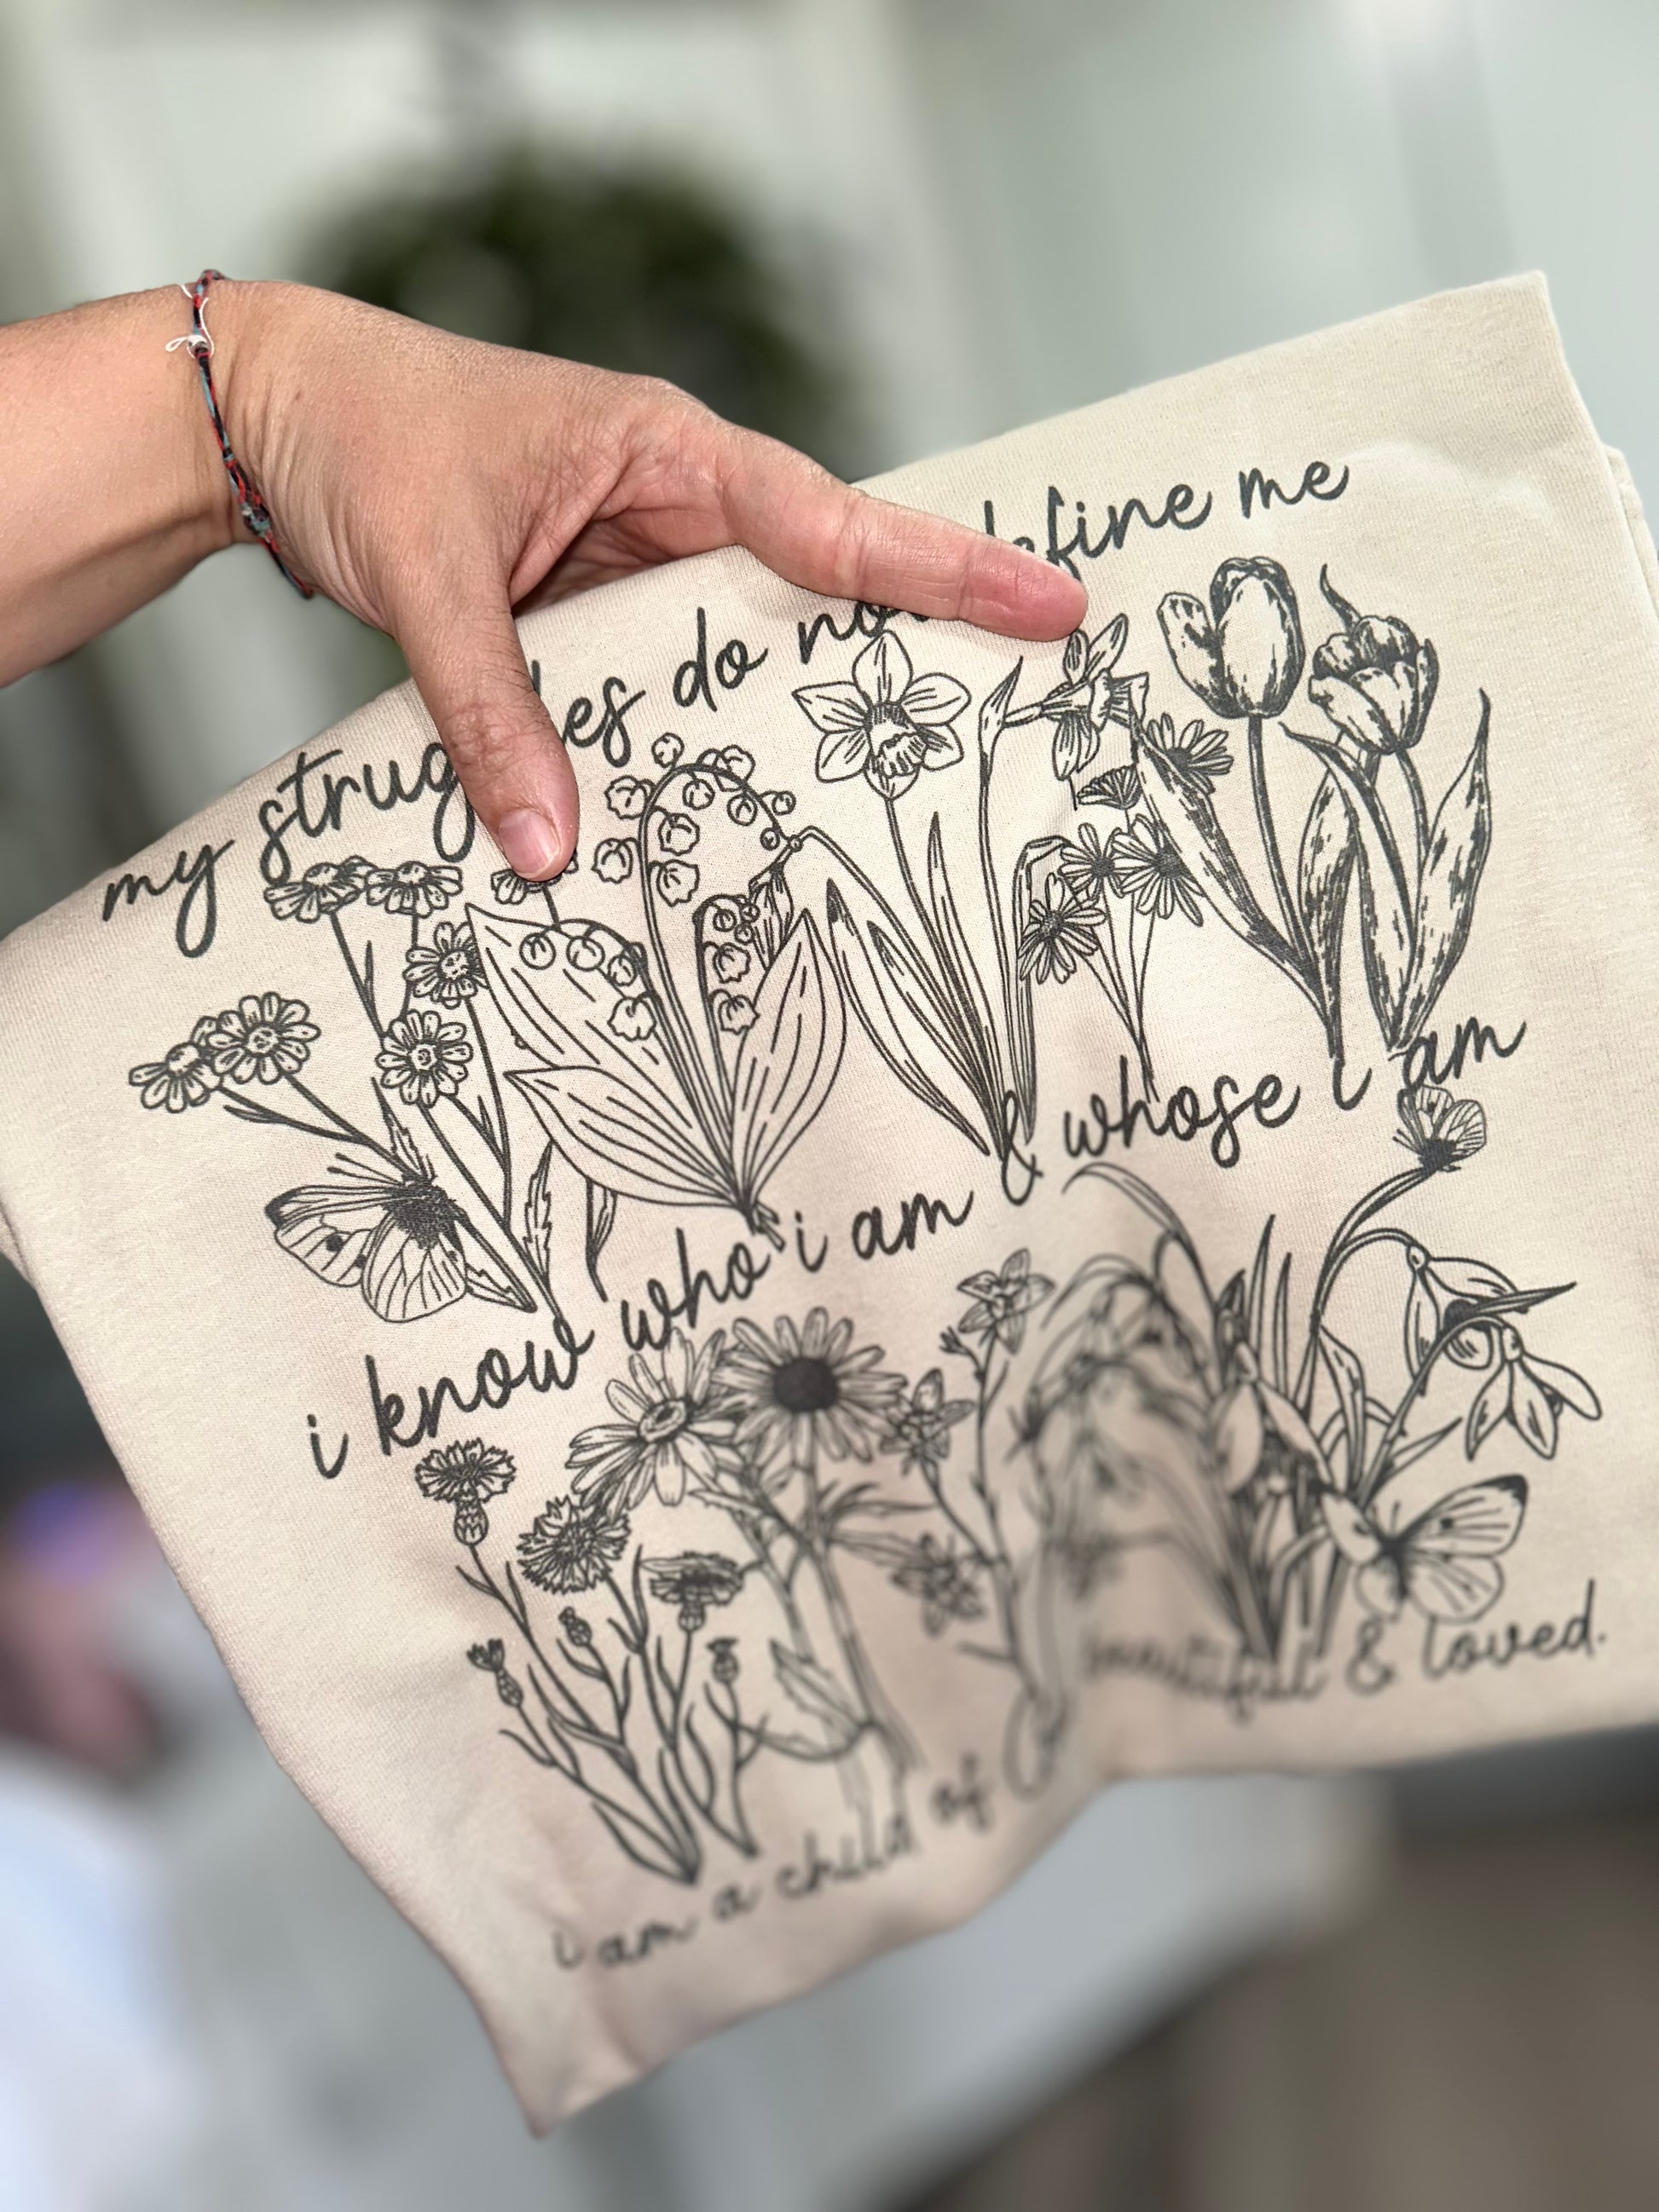 my struggles do not define me
i know who i am & whose i am
i am a child of beautiful & loved.